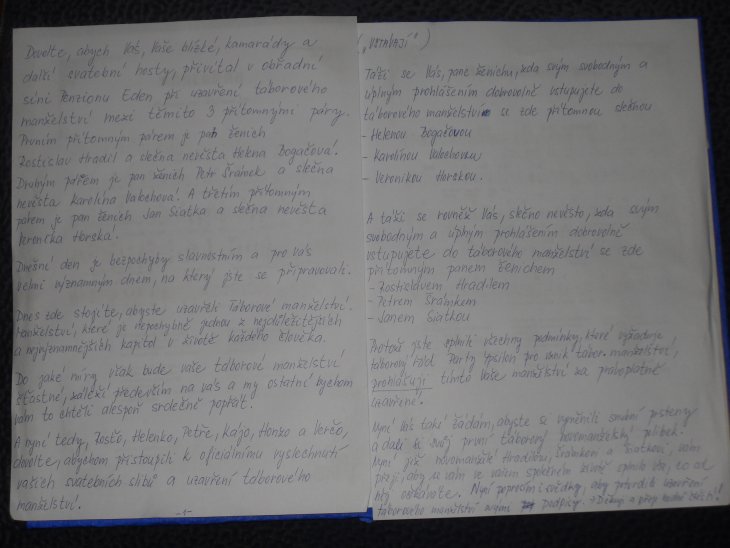 Dovolte, abych Vás, Vaše blízké, kamarády a
další svatební hosty, přivítal v obřadní
síni Penzionu Eden při uzavření táborového
manželství mezi těmito 3 přítomnými páry.
Prvním přítomným párem je pan ženich
Rostislav Hradil a slečna nevěsta Helena Bogačová.
Druhým párem je pan ženich Petr Šrámek a slečna
nevěsta Karolína Valchová. A třetím přítomným
párem je pan ženich Jan Siatka a slečna nevěsta
Veronika Horská.
Dnešní den je bezpochyby slavnostním a pro vás
velmi významným dnem, na který jste se připravovali.
Dnes zde stojíte, abyste uzavřeli Táborové manželství.
Manželství, které je nepochybně jednou z nejdůležitějších
a nejvýznamnějších kapitol v životě každého člověka.
Do jaké míry však bude vaše táborové manželství
šťastné, záleží především na vás a my ostatní bychom
vám to chtěli alespoň srdečně popřát.
A nyní tedy, Rosťo, Helenko, Petře, Kájo, Honzo a Verčo,
dovolte, abychom přistoupili k oficiálnímu vyslechnutí
vašich svatebních slibů a uzavření táborového
manželství.
-1-
("VSTÁVAJÍ")
Táži se Vás, pane ženichu, zda svým svobodným a
úplným prohlášením dobrovolně vstupujete do
táborového manželství se zde přítomnou slečnou
- Helenou Bogačovou
- Karolínou Valchovou
- Veronikou Horskou.
A táži se rovněž Vás, slečno nevěsto, zda svým
svobodným a úplným prohlášením dobrovolně
vstupujete do táborového manželství se zde
přítomným panem ženichem
- Rostislavem Hradilem
- Petrem Šrámkem
- Janem Siatkou
Protože jste splnili všechny podmínky, které vyžaduje
táborový řád Party Ypsilon pro vznik tábor. manželství,
prohlašuji tímto Vaše manželství za právoplatně
uzavřené.
Nyní Vás také žádám, abyste si vyměnili snubní prsteny
a dali si svůj první táborový novomanželský polibek.
Nyní již novomanželé Hradilovi, Šrámkovi a Siatkovi, vám
přeji, aby se vám ve vašem společném životě splnilo vše, co od
něj očekáváte. Nyní poprosím svědky, aby potvrdili uzavření
táborového manželství svými podpisy. → Děkuji a přeji hodně štěstí!